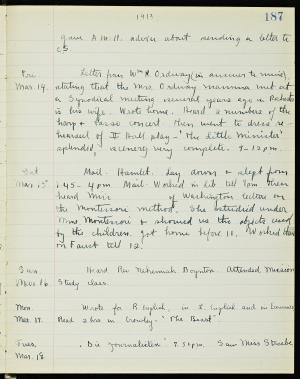 1913
187
gave A.M.H. advice about sending a letter to
Fri. Letter from Wm R. Ordway (in answer to mine)
Mar. 14. stating that the Mrs. Ordway mamma met at
a Synodical meeting several years ago in
is his wife. Wrote home. Heard a number of the
harp & concert then went to dress re-
hearsal of II Hall play - "The Little Minister"
splendid, scenery very complete. 9-12 p.m.
Sat. Mail. Hamlet. lay down & slept from
Mar. 15 1.45 - 4 p.m. Mail. Worked in lib till 7 p.m. then
heard Miss of Washington lecture on
the Montessori method. She studied under
Mme Montessori & showed us the objects used
by the children. Got home before 10. Worked then
on Faust till 12.
Sun. Heard Rev Nehemiah Boynton. Attended Mission
Mar. 16. Study class.
Mon. Wrote for R. English, in L. English and in
Mar. 17. Read 2 hrs in "The Beast"
Tues. Die Journalisten 7.30 p.m. Saw Miss
Mar. 18.